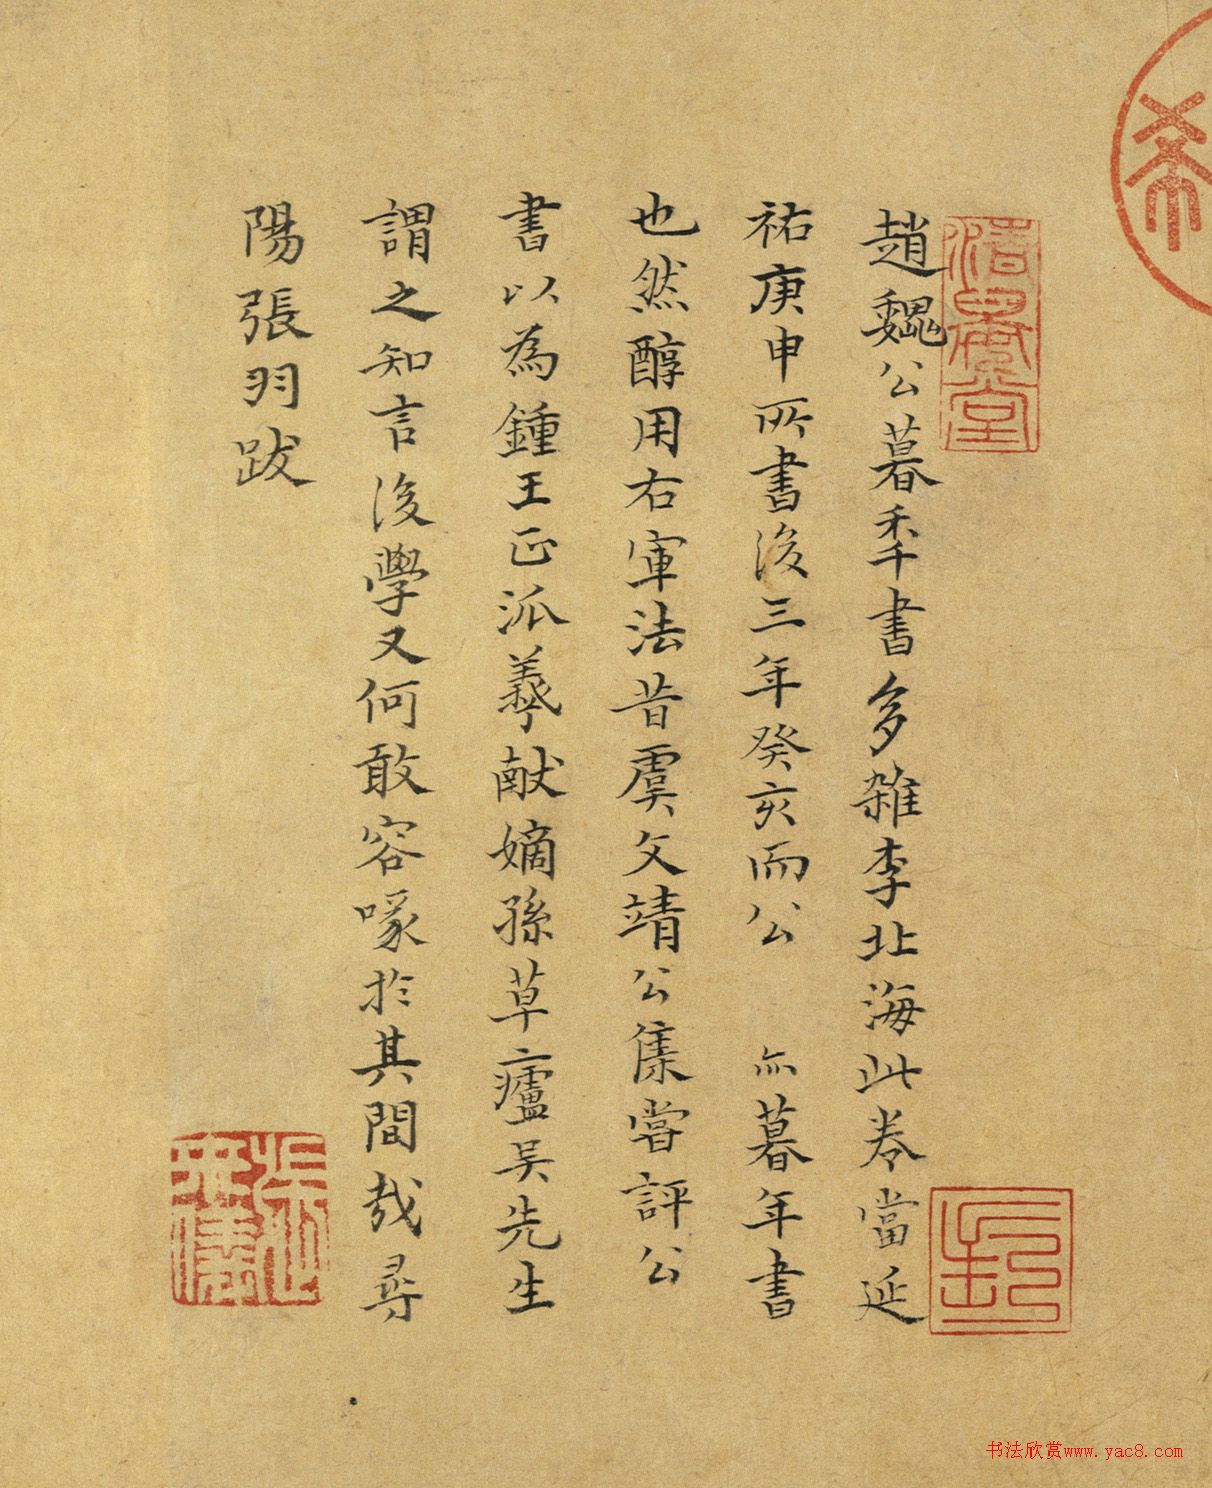 趙魏公暮秊書多雜李北海此卷當延
祐庚申所書後三年癸亥而公 亦暮年書
也然醇用右軍法昔虞文靖公集嘗評公
書以為鍾王正派羲献嫡孫草廬吴先生
謂之知言後學又何敢容喙於其間哉尋
陽張羽跋
书法欣赏www.yac8.com